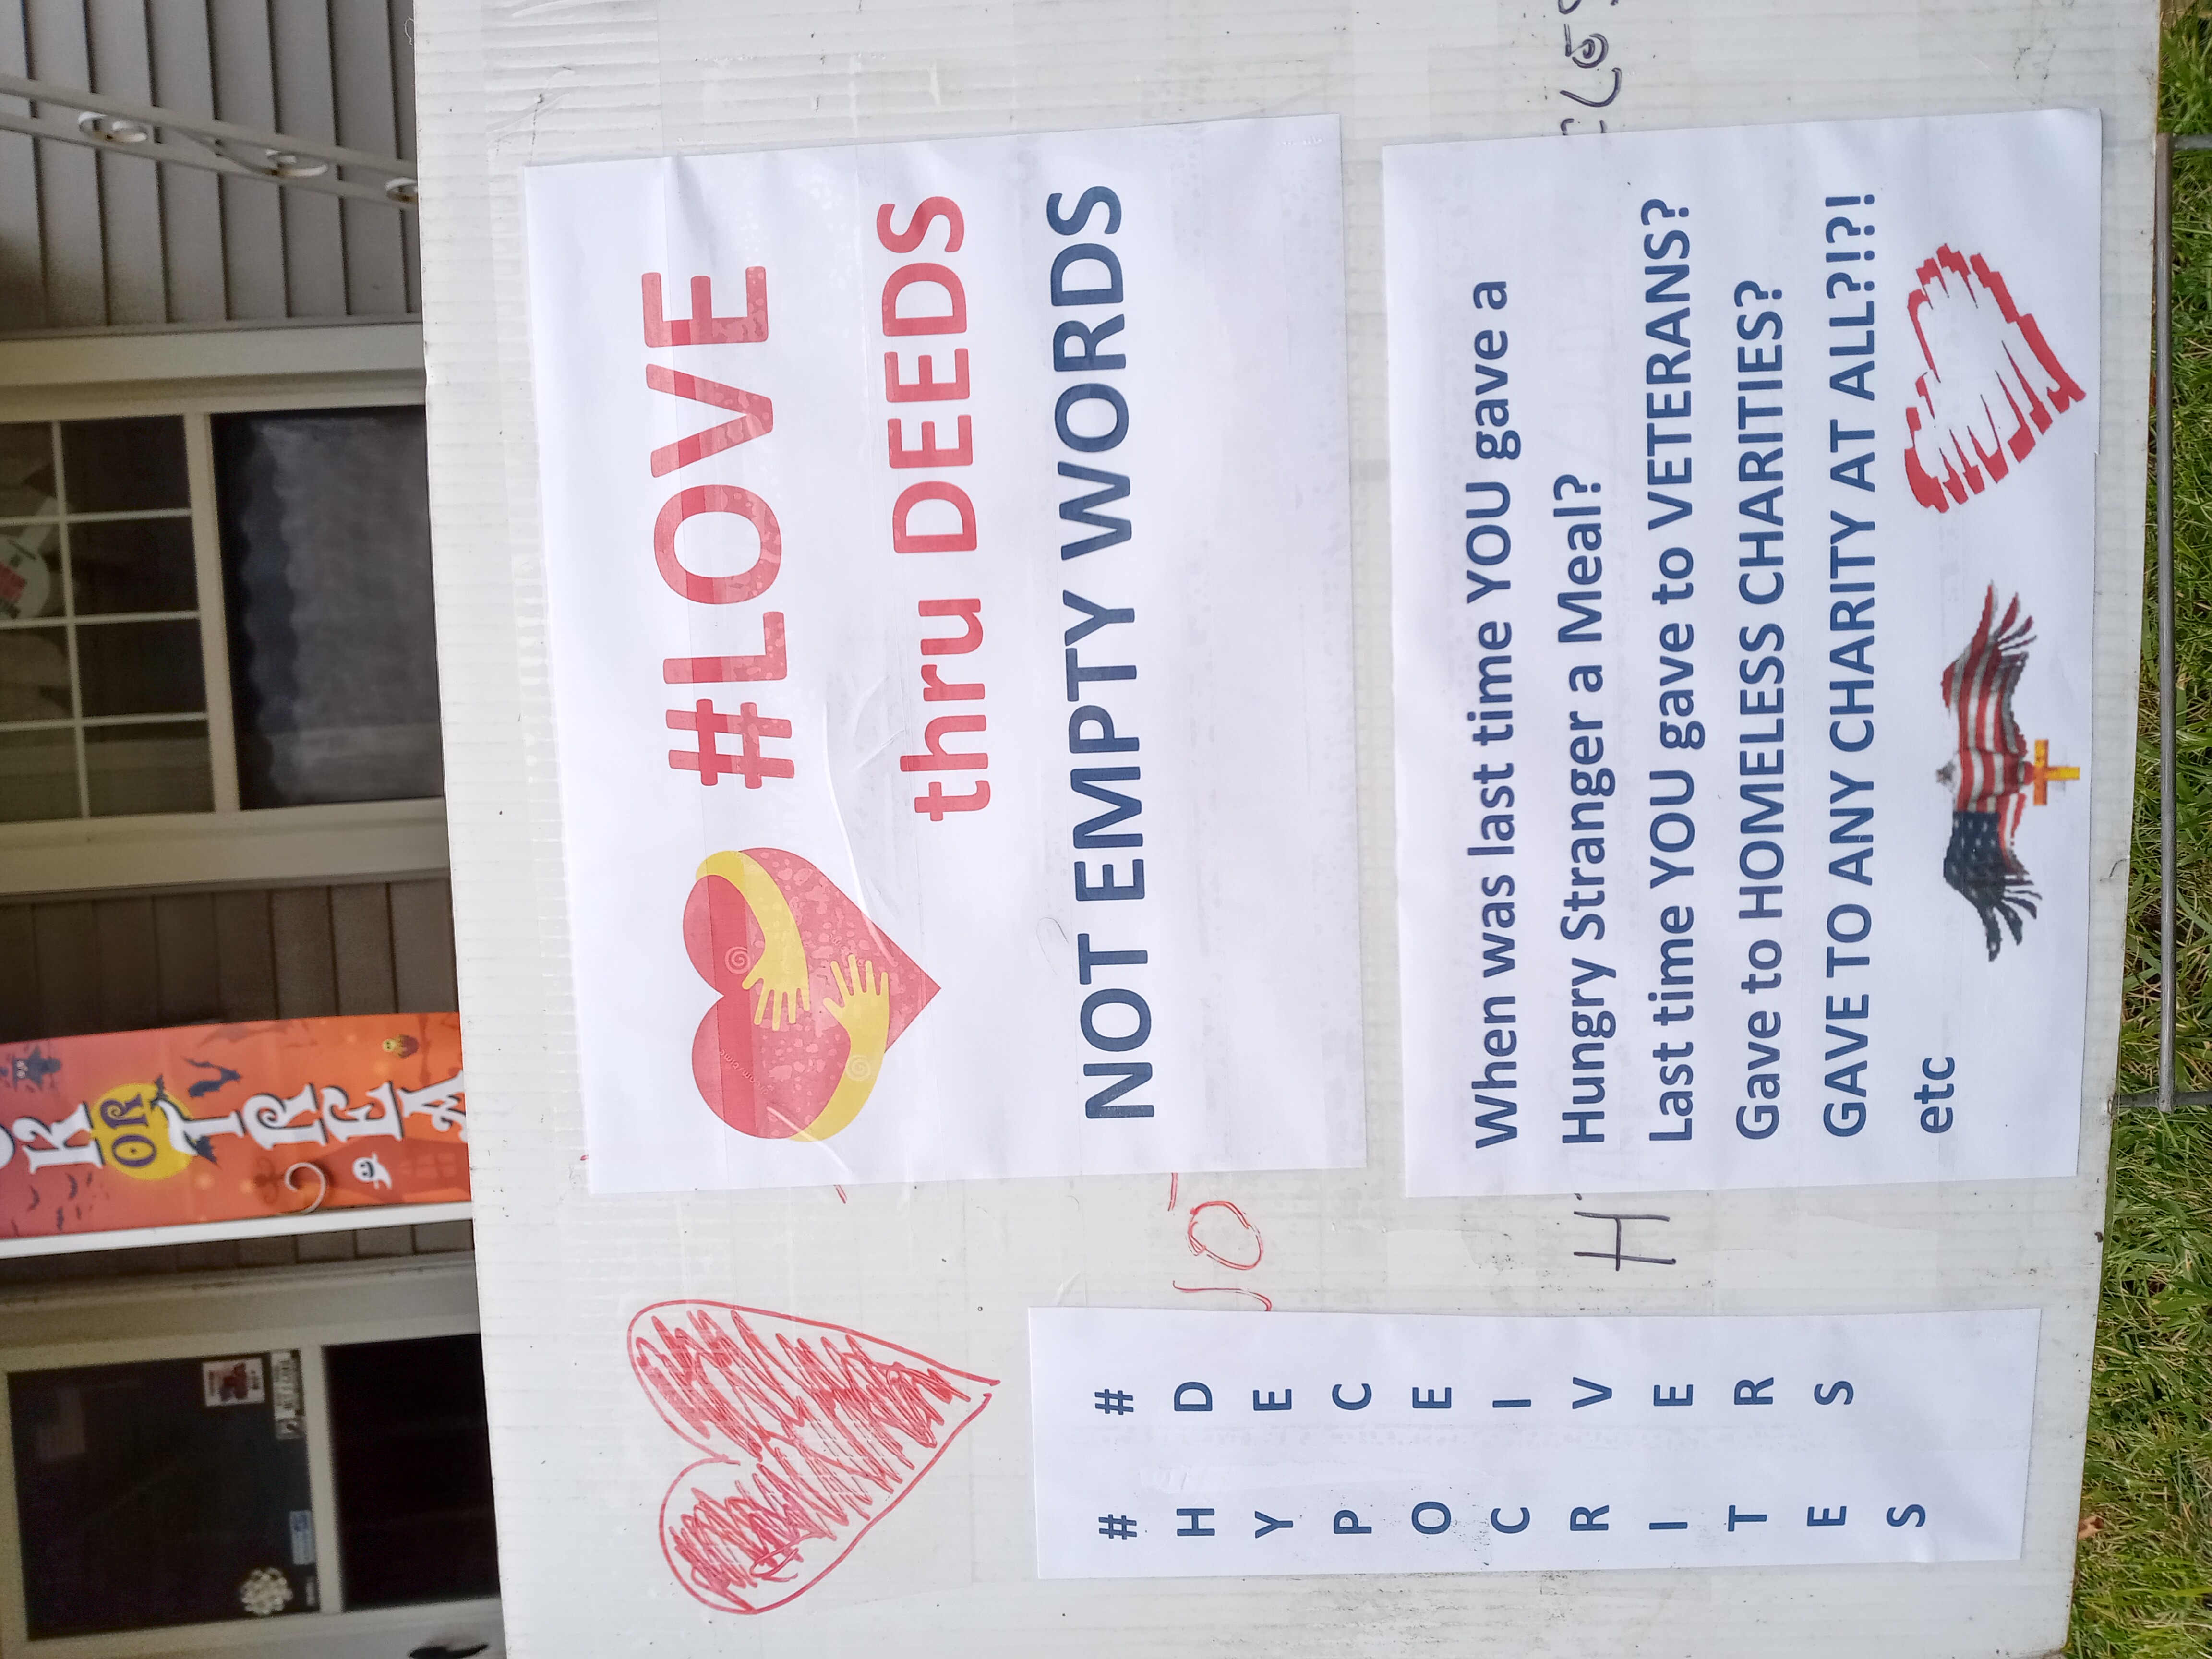 K
OR
TREA
#LOVE
thru DEEDS
NOT EMPTY WORDS
When was last time YOU gave a
Hungry Stranger a Meal?
Last time YOU gave to VETERANS?
Gave to HOMELESS CHARITIES?
GAVE TO ANY CHARITY AT ALL?!?!
etc
# #
H D
Y E
P C
O E
C I
R V
I E
T R
E S
S
H